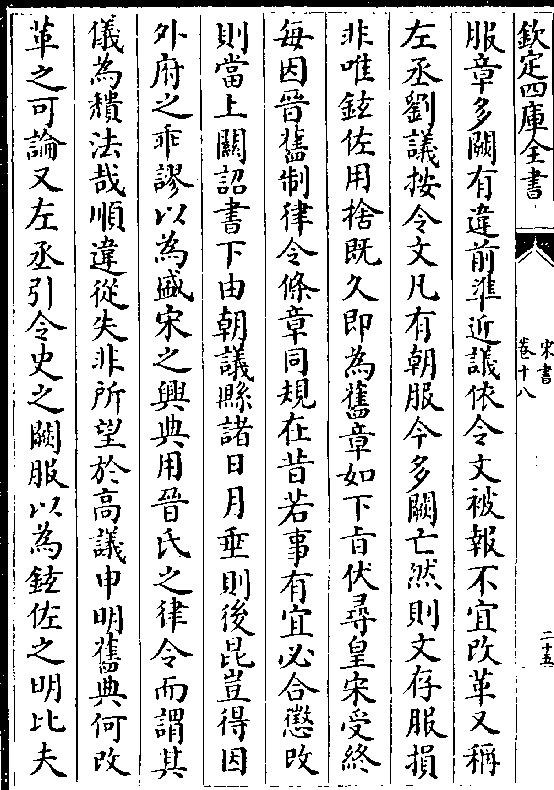 欽定四庫全書
宋書
卷十八
二十五
服章多闕有違前準近議依令文被報不宜改革又稱
左丞劉議按令文凡有朝服今多闕亡然則文存服損
非唯鉉佐用捨既久即為舊章如下旨伏尋皇宋受終
每因晉舊制律令條章同規在昔若事有宜必合懲改
則當上關詔書下由朝議縣諸日月垂則後昆豈得因
外府之乖謬以為盛宋之興典用晉氏之律令而謂其
儀為穨法哉順違從失非所望於高議申明舊典何改
革之可論又左丞引令史之闕服以為鉉佐之明比夫